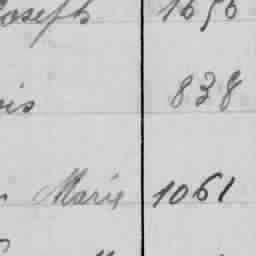 Joseph 1656
ois 838
Marie 1061